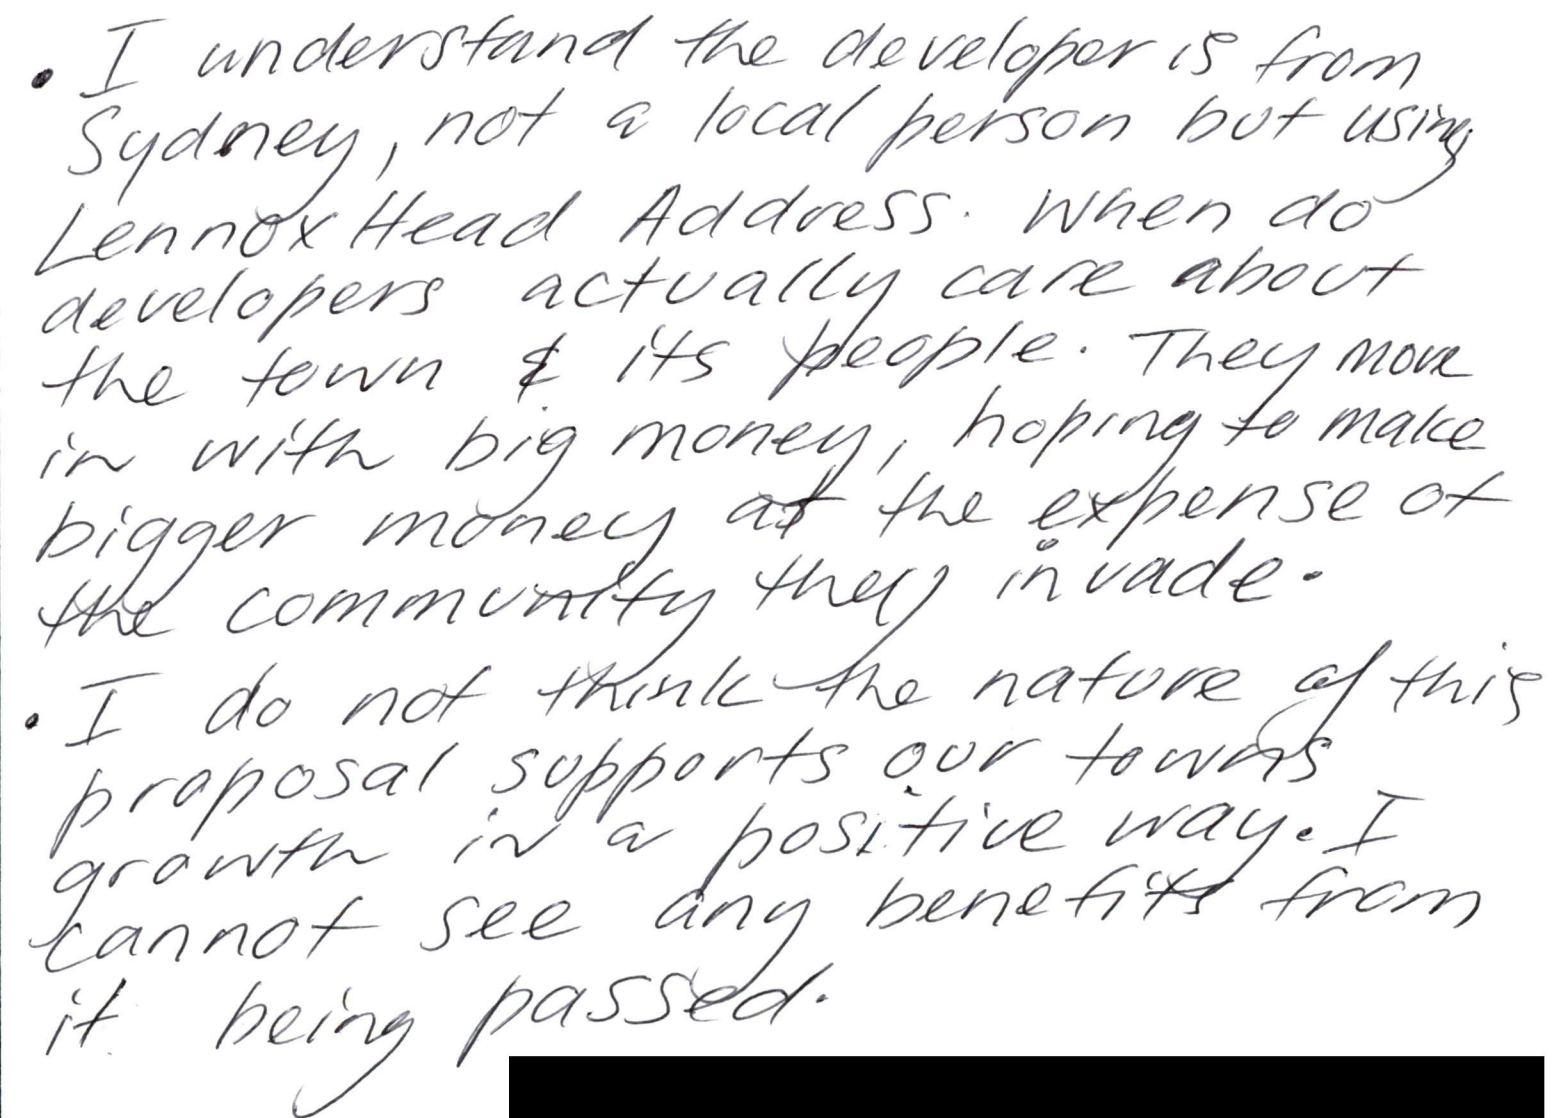 • I understand the developer is from
Sydney, not a local person but using
Lennox Head Address. When do
developers actually care about
the town & its people. They move
in with big money, hoping to make
bigger money at the expense of
the community they invade.
• I do not think the nature of this
proposal supports our towns
growth in a positive way. I
cannot see any benefits from
it being passed.